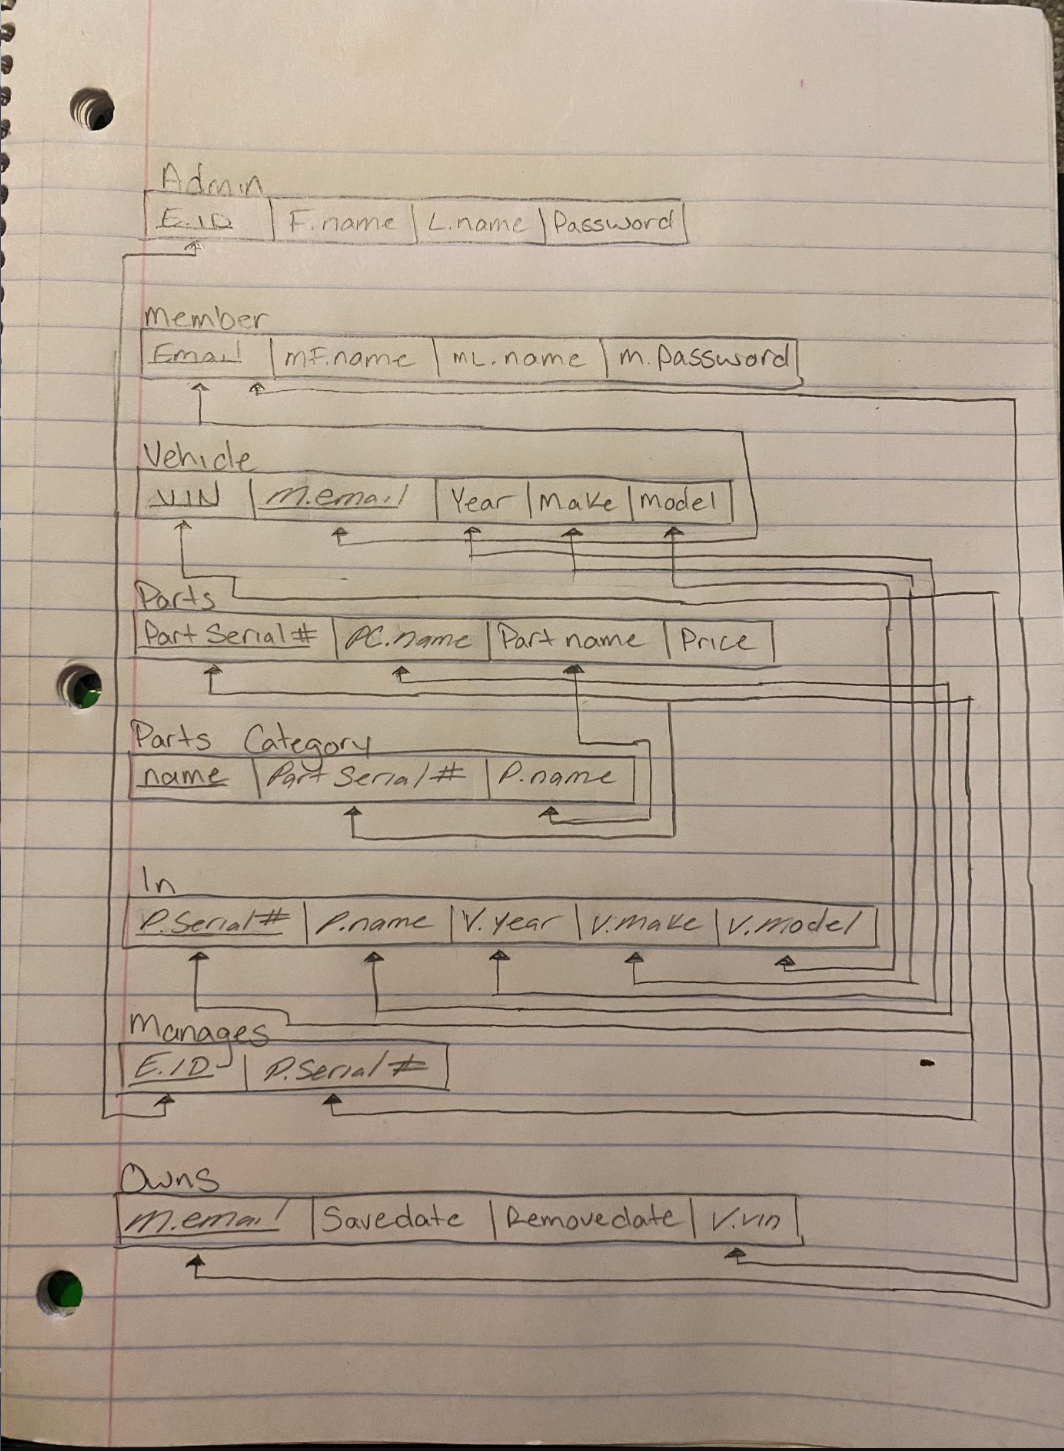 Admin
E.ID F.name L.name Password
Member
Email mF.name mL.name m.password
Vehicle
VIN m.email Year Make Model
Parts
Part Serial# PC.name Part name Price
Parts Category
name Part Serial# P.name
In
P.Serial# P.name V.year V.make V.model
Manages
E.ID P.Serial#
Owns
m.email Savedate Removedate V.vin